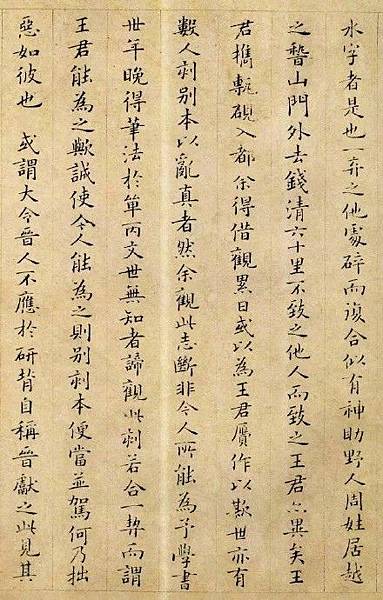 水字者是也一弃之他處碎而復合似有神助野人周姓居越
之稽山門外去錢清六十里不致之他人而致之王君亦異矣王
君攜甎硯入都余得借觀累日或以為王君贗作以欺世亦有
數人刻别本以亂真者然余觀此志斷非今人所能為予學書
卅年晚得筆法於單丙文世無知者諦觀此刻若合一契而謂
王君能為之歟誠使今人能為之則别刻本便當並駕何乃拙
惡如彼也　或謂大令晉人不應於研背自稱晉獻之此見其